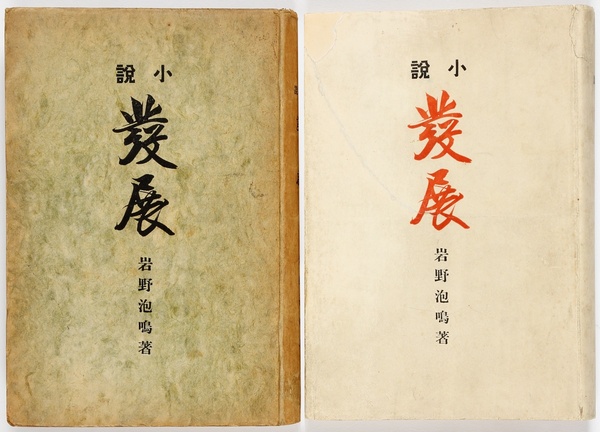 小說
發展
岩野泡鳴著
小說
發展
岩野泡鳴著